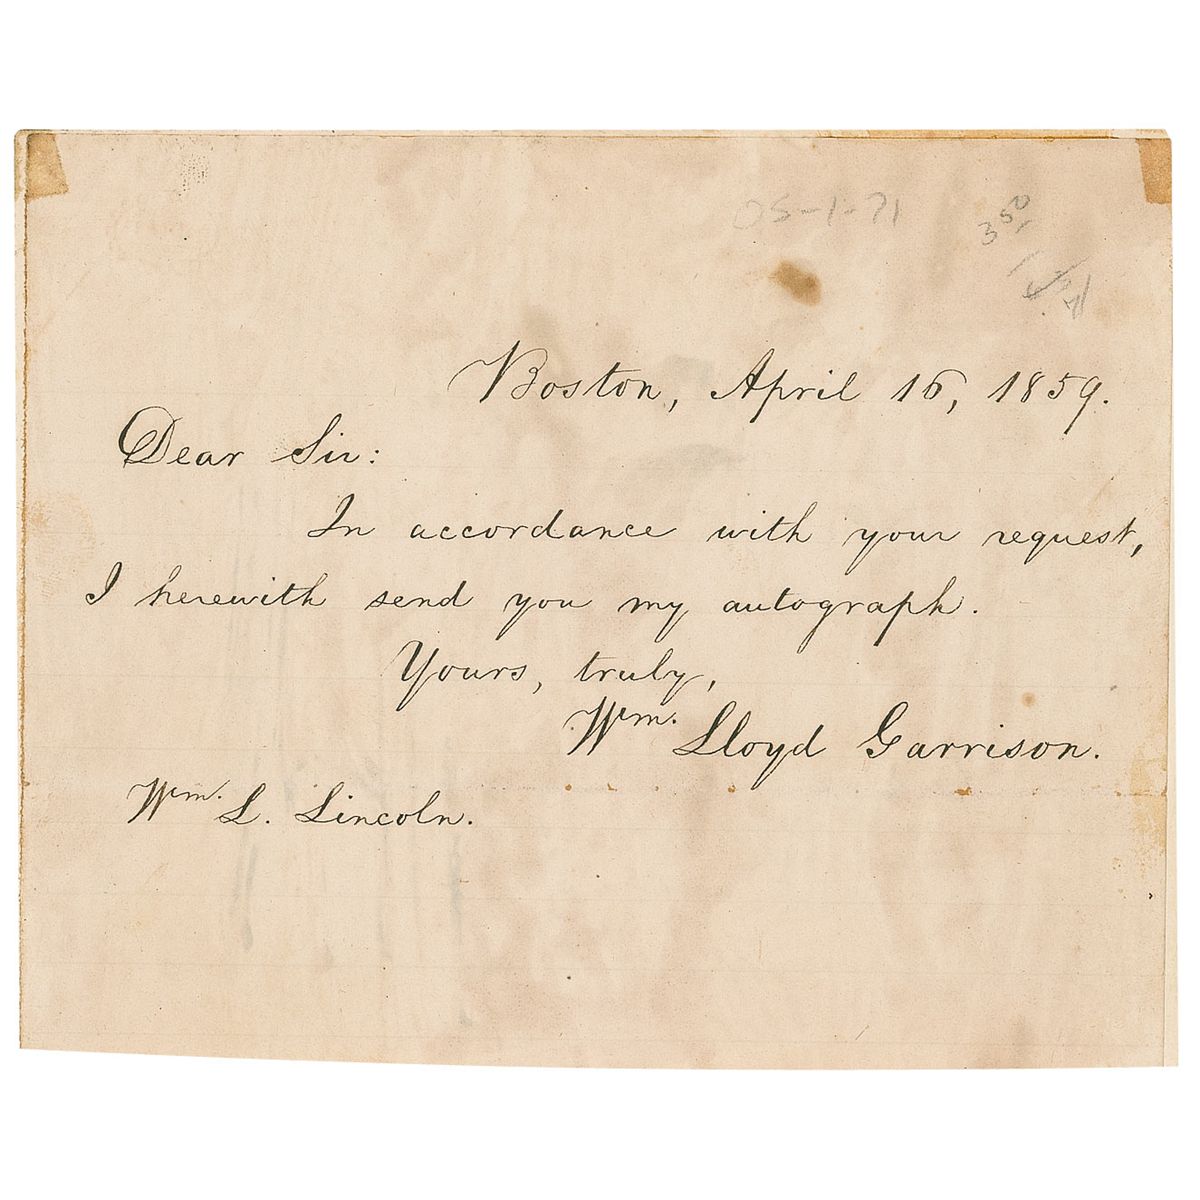 05-1-71
3 50
Boston, April 16, 1859.
Dear Sir:
In accordance with your request,
I herewith send you my autograph.
Yours, truly,
Wm. Lloyd Garrison.
Wm. L. Lincoln.